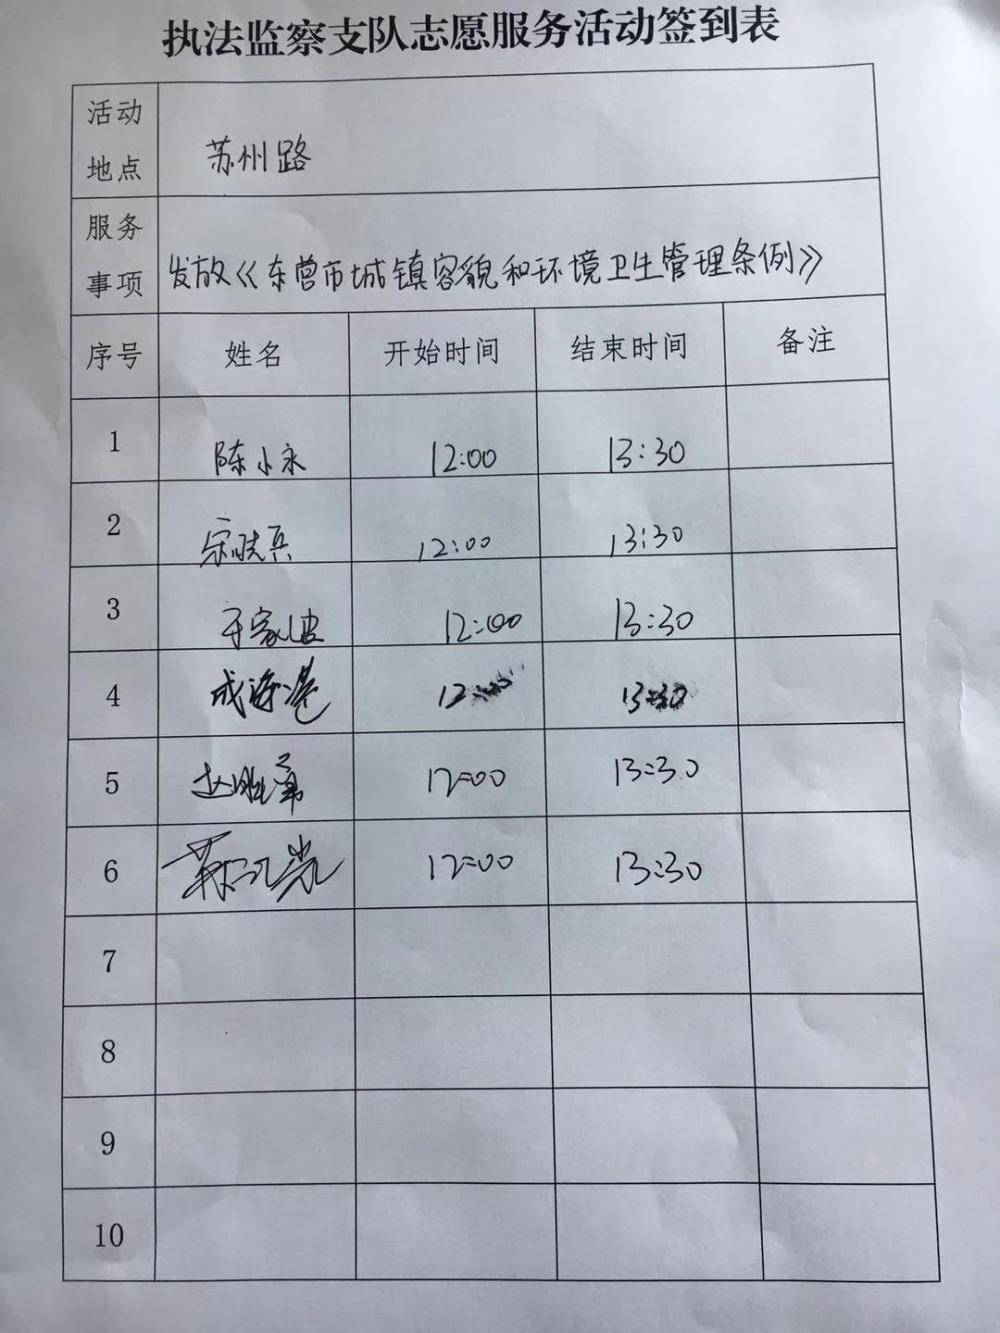 执法监察支队志愿服务活动签到表
活动地点 苏州路
服务事项 发放《东营市城镇容貌和环境卫生管理条例》
序号 姓名 开始时间 结束时间 备注
1 陈小永 12:00 13:30
2 宋晓兵 12:00 13:30
3 于家波 12:00 13:30
4 成海港 12:00 13:30
5 赵 12:00 13:30
6 12:00 13:30
7
8
9
10